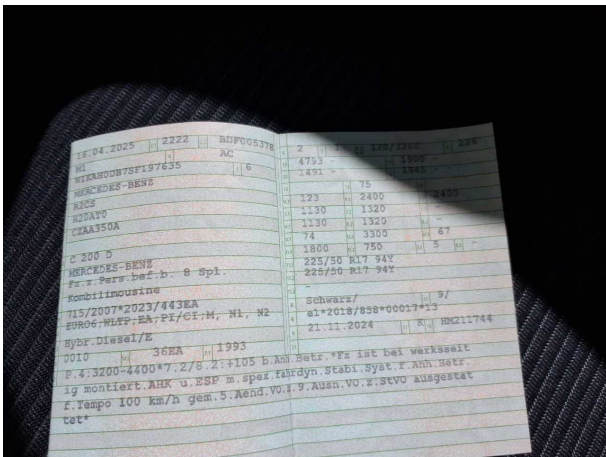 16.04.2025 2222 BDF005378
M1 AC
W1KAH0DB7SF197635 6
MERCEDES-BENZ
R2CS
H20AT0
CZAA350A
C 200 D
MERCEDES-BENZ
Fz.z.Pers.bef.b. 8 Spl.
Kombilimousine
715/2007*2023/443EA
EURO6;WLTP;EA;PI/CI;M, N1, N2
Hybr.Diesel/E
0010 36EA 1993
2 120/3200 226
4793 - 1900 -
1491 - 1545 -
75
123 2400 2400
1130 1320 -
1130 1320 -
74 3300 67
1800 750 5 -
225/50 R17 94Y
225/50 R17 94Y
-
Schwarz/ 9/
e1*2018/858*00017*13
21.11.2024 K HM211744
P.4:3200-4400*7.2/8.2:+105 b.Anh.Betr.*Fz ist bei werksseit
ig montiert.AHK u.ESP m.spez.fahrdyn.Stabi.Syst.f.Anh.Betr.
f.Tempo 100 km/h gem.5.Aend.VO.z.9.Ausn.VO.z.StVO ausgestat
tet*